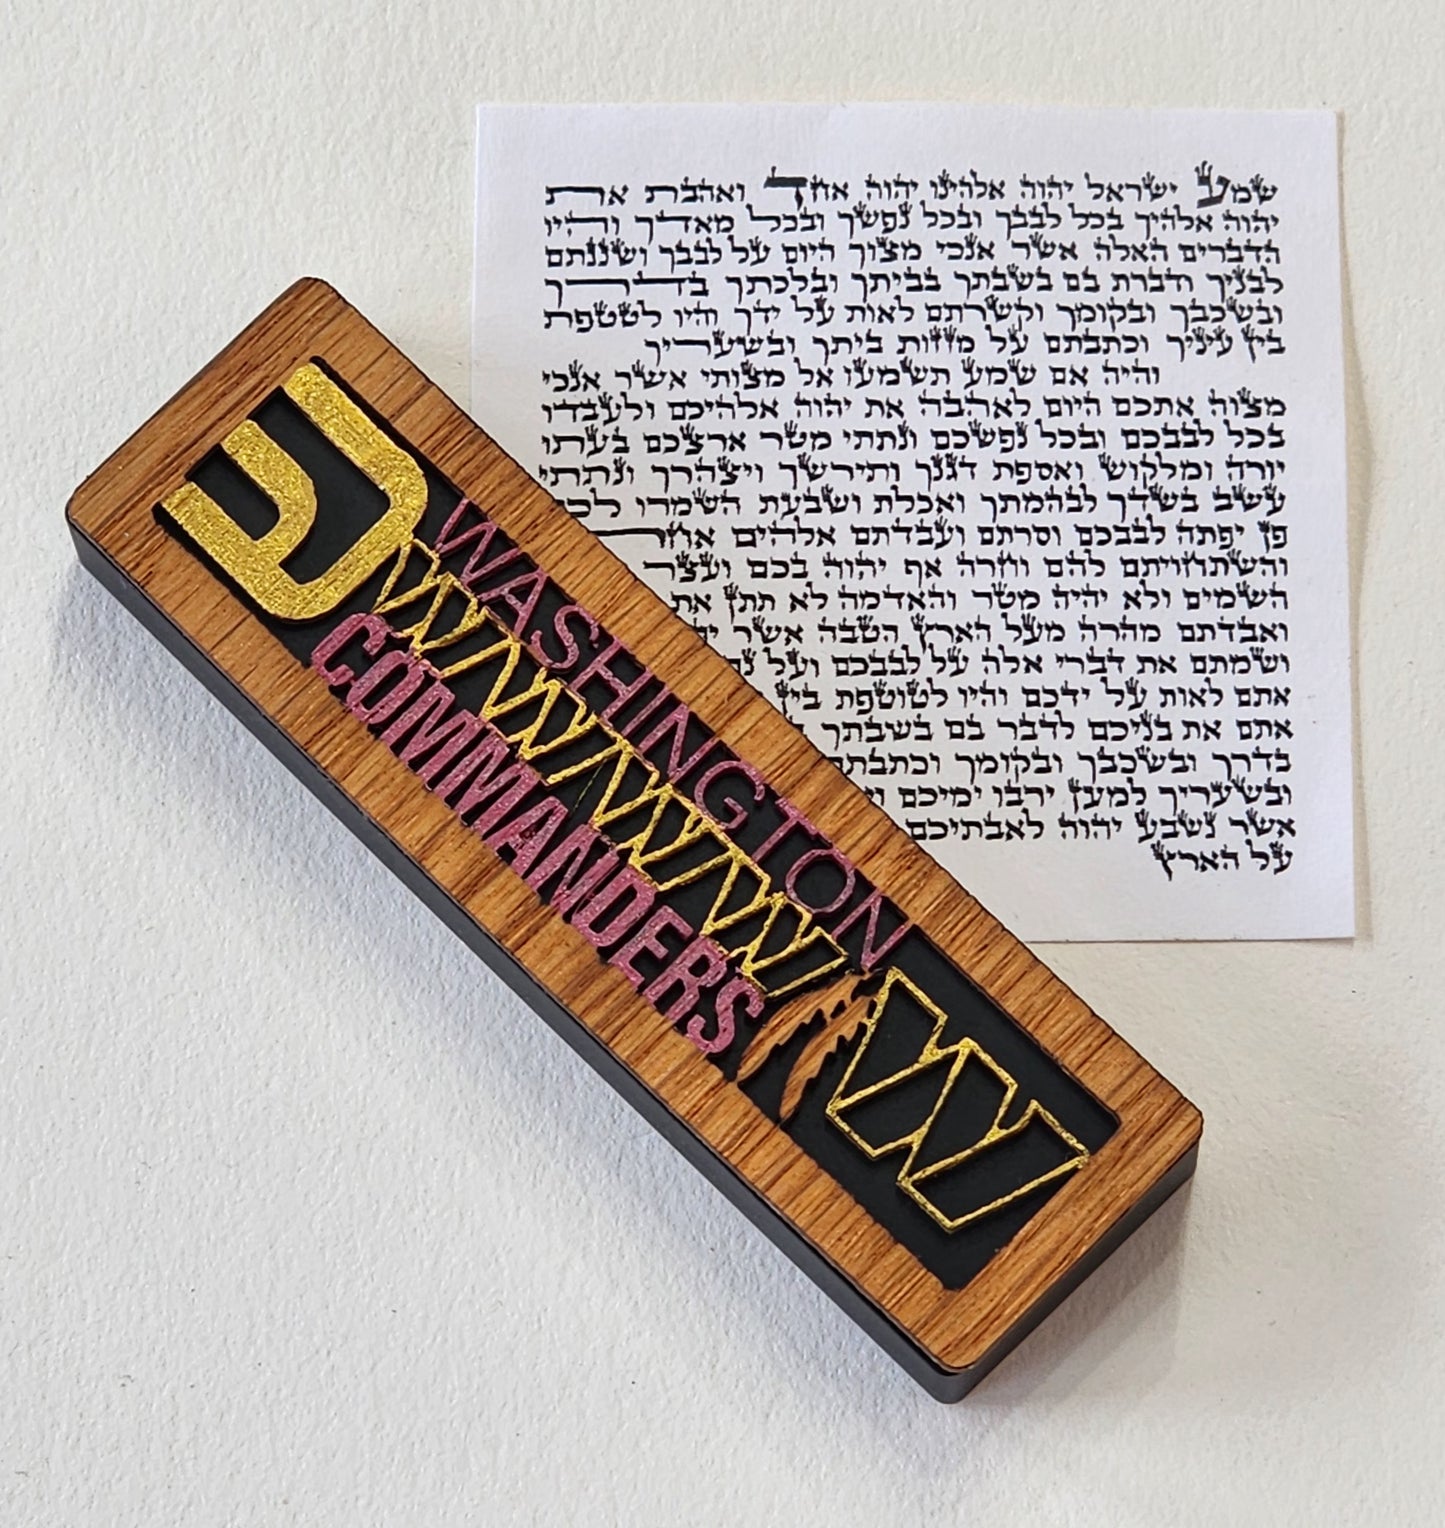 שמע ישראל יהוה אלהינו יהוה אחד ואהבת את
יהוה אלהיך בכל לבבך ובכל נפשך ובכל מאדך והיו
הדברים האלה אשר אנכי מצוך היום על לבבך ושננתם
לבניך ודברת בם בשבתך בביתך ובלכתך בדרך
ובשכבך ובקומך וקשרתם לאות על ידך והיו לטטפת
בין עיניך וכתבתם על מזזות ביתך ובשעריך
והיה אם שמע תשמעו אל מצותי אשר אנכי
מצוה אתכם היום לאהבה את יהוה אלהיכם ולעבדו
בכל לבבכם ובכל נפשכם ונתתי מטר ארצכם בעתו
יורה ומלקוש ואספת דגנך ותירשך ויצהרך ונתתי
עשב בשדך לבהמתך ואכלת ושבעת השמרו לכם
פן יפתה לבבכם וסרתם ועבדתם אלהים
והשתחויתם להם וחרה אף יהוה בכם ועצר
השמים ולא יהיה מטר והאדמה לא תתן את
ואבדתם מהרה מעל הארץ הטבה אשר
ושמתם את דברי אלה על לבבכם ועל
אתם לאות על ידכם והיו לטוטפת בין
אתם את בניכם לדבר בם בשבתך
בדרך ובשכבך ובקומך
ובשעריך למען ירבו ימיכם
אשר נשבע יהוה לאבתיכם
על הארץ
ש
WASHINGTON
COMMANDERS
W